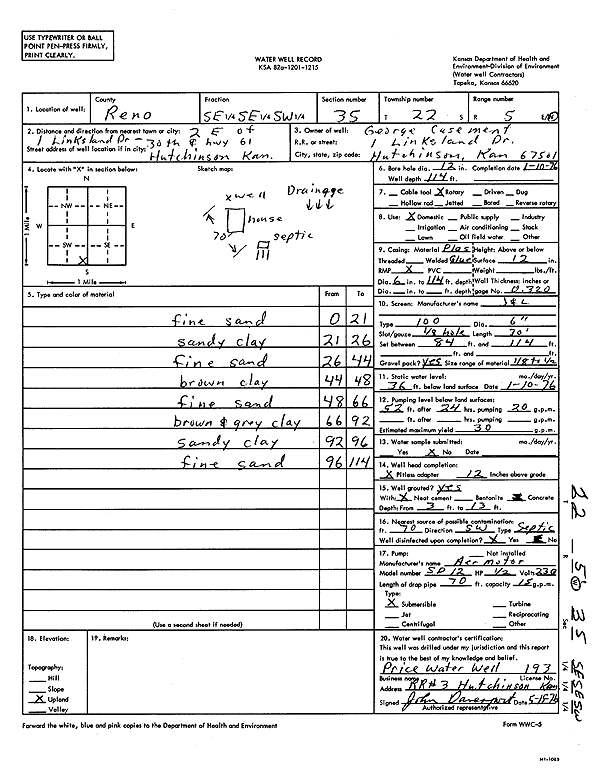 USE TYPEWRITER OR BALL
POINT PEN-PRESS FIRMLY,
PRINT CLEARLY.
WATER WELL RECORD
KSA 82a-1201-1215
Kansas Department of Health and
Environment-Division of Environment
(Water well Contractors)
Topeka, Kansas 66620
1. Location of well:
County
Reno
Fraction
SE 1/4 SE 1/4 SW 1/4
Section number
35
Township number
T 22 S
Range number
R 5
2. Distance and direction from nearest town or city: 2 E of
1 Linksland Dr - 30th & hwy 61
Street address of well location if in city:
Hutchinson Kan.
3. Owner of well: George Casement
R.R. or street: 1 Linksland Dr.
City, state, zip code: Hutchinson, Kan 67501
4. Locate with "X" in section below:
N
NW
NE
W
E
SW
SE
X
S
1 Mile
1 Mile
Sketch map:
x well
Drainage
house
70'
septic
6. Bore hole dia. 12 in. Completion date 1-10-76
Well depth 114 ft.
7. Cable tool X Rotary Driven Dug
Hollow rod Jetted Bored Reverse rotary
8. Use: X Domestic Public supply Industry
Irrigation Air conditioning Stock
Lawn Oil field water Other
9. Casing: Material Plas Height: Above or below
Threaded Welded Glue Surface 12 in.
RMP X PVC Weight lbs./ft.
Dia. 6 in. to 114 ft. depth Wall Thickness: inches or
Dia. in. to ft. depth gage No. 0.320
5. Type and color of material
From To
fine sand 0 21
sandy clay 21 26
fine sand 26 44
brown clay 44 48
fine sand 48 66
brown & grey clay 66 92
sandy clay 92 96
fine sand 96 114
(Use a second sheet if needed)
10. Screen: Manufacturer's name
Type 100 Dia. 6"
Slot/gauze 1/8 hole Length 70'
Set between 84 ft. and 114 ft.
ft. and ft.
Gravel pack? yes Size range of material 1/8 to 1/2
11. Static water level: mo./day/yr.
36 ft. below land surface Date 1-10-76
12. Pumping level below land surfaces:
52 ft. after 24 hrs. pumping 20 g.p.m.
ft. after hrs. pumping g.p.m.
Estimated maximum yield 30 g.p.m.
13. Water sample submitted: mo./day/yr.
Yes X No Date
14. Well head completion:
X Pitless adapter 12 Inches above grade
15. Well grouted? yes
With: X Neat cement Bentonite Concrete
Depth: From 3 ft. to 13 ft.
16. Nearest source of possible contamination:
ft. 70 Direction SW Type Septic
Well disinfected upon completion? X Yes No
17. Pump: Not installed
Manufacturer's name Aer motor
Model number SP 12 HP 1/2 Volts 230
Length of drop pipe 70 ft. capacity 15 g.p.m.
Type:
X Submersible Turbine
Jet Reciprocating
Centrifugal Other
18. Elevation:
Topography:
Hill
Slope
X Upland
Valley
19. Remarks:
20. Water well contractor's certification:
This well was drilled under my jurisdiction and this report
is true to the best of my knowledge and belief.
Price Water Well 193
Business name License No.
Address RR#3 Hutchinson Kan
Signed John Davenport Date 5-18-76
Authorized representative
Forward the white, blue and pink copies to the Department of Health and Environment
Form WWC-5
T 22
R 5 W
Sec 35
1/4 1/4 1/4 SE SE SW